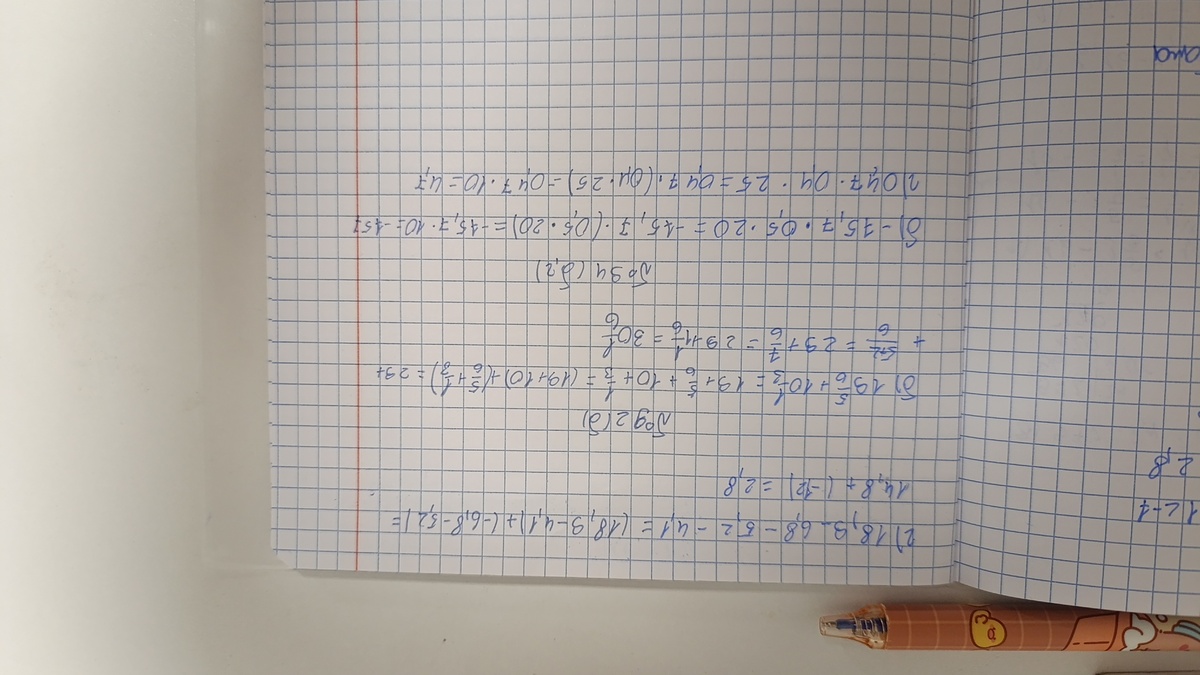 2,8
г) 18,9 - 6,8 - 5,2 - 4,1 = (18,9 - 4,1) + (-6,8 - 5,2) =
14,8 + (-12) = 2,8
№92 (б)
б) 19 5/6 + 10 1/3 = 19 + 5/6 + 10 + 1/3 = (19+10) + (5/6 + 1/3) = 29 +
+ 5+2/6 = 29 + 7/6 = 29 + 1 1/6 = 30 1/6
№94 (б,г)
б) -15,7 · 0,5 · 20 = -15,7 · (0,5 · 20) = -15,7 · 10 = -157
г) 0,47 · 0,4 · 25 = 0,47 · (0,4 · 25) = 0,47 · 10 = 4,7